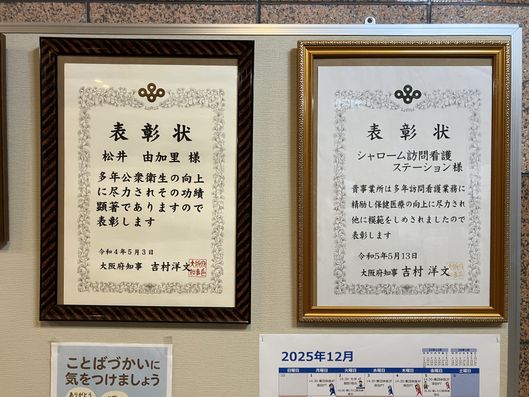 表彰状
松井 由加里 様
多年公衆衛生の向上
に尽力されその功績
顕著でありますので
表彰します
令和4年5月3日
大阪府知事 吉村洋文
表彰状
シャローム訪問看護
ステーション様
貴事業所は多年訪問看護業務に
精励し保健医療の向上に尽力され
他に模範をしめされましたので
表彰します
令和5年5月13日
大阪府知事 吉村洋文
ことばづかいに
気をつけましょう
ありがとう
2025年12月
日曜日 月曜日 火曜日 水曜日 木曜日 金曜日 土曜日